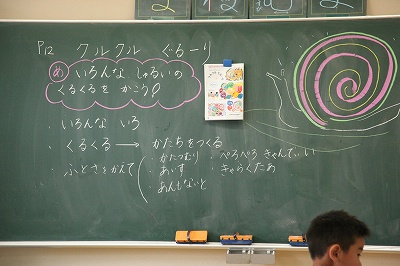 P12 クルクル ぐるーり
め いろんな しゅるいの
くるくるを かこう!
・いろんな いろ
・くるくる → かたちをつくる
・ふとさをかえて
・かたつむり
・あいす
・あんもないと
・ぺろぺろ きゃんでぃい
・きゃらくたあ